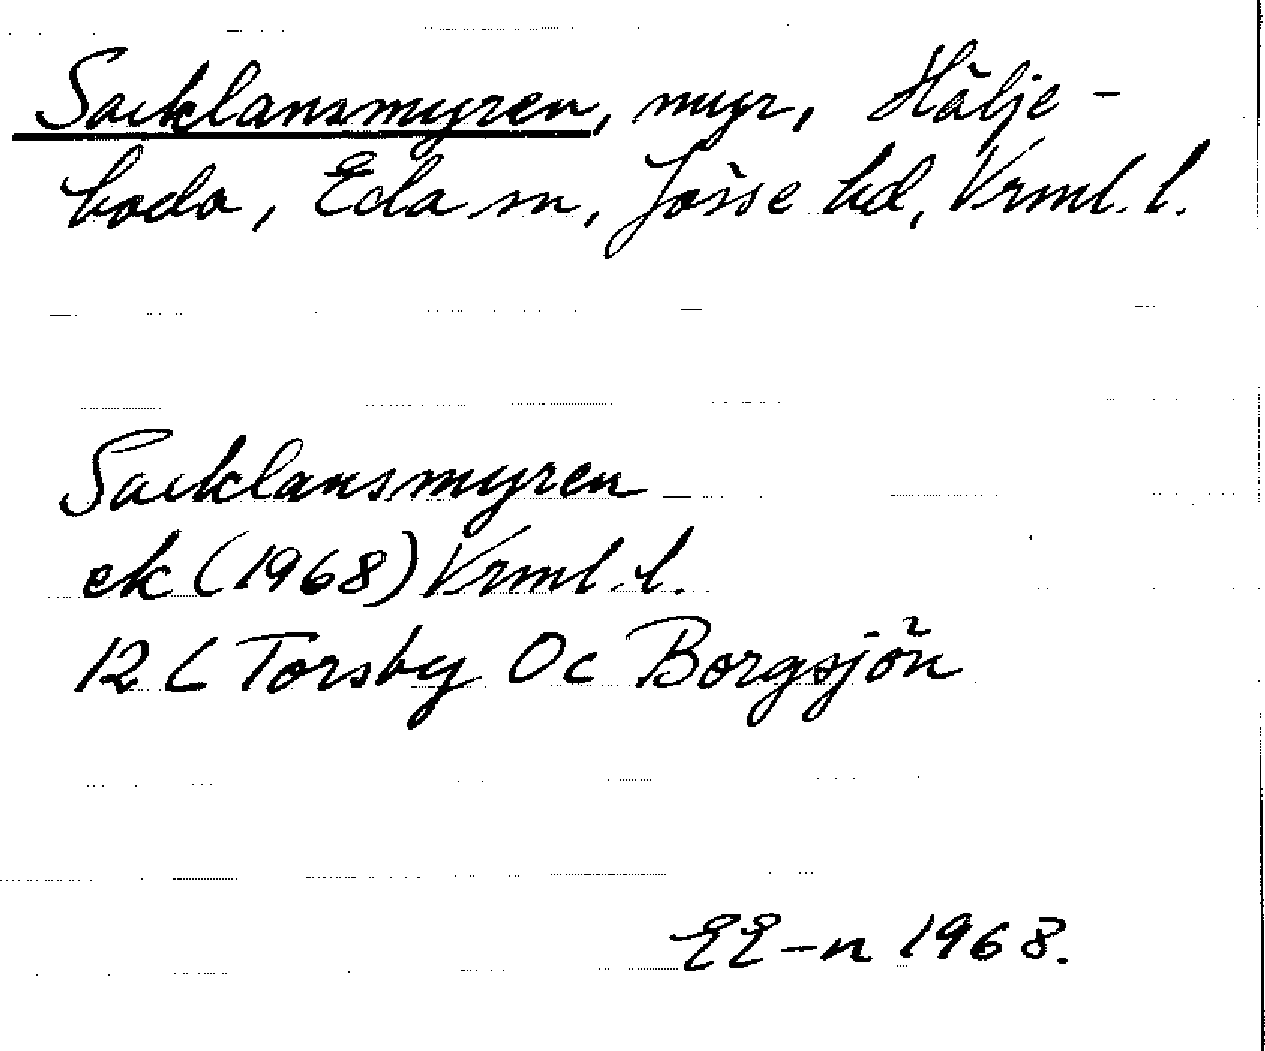 Sacklansmyren, myr, Hälje-
boda, Eda sn, Jösse hd, Vrml. l.
Sacklansmyren
ek (1968) Vrml. l.
12 C Torsby 0c Borgsjön
EE-n 1968.